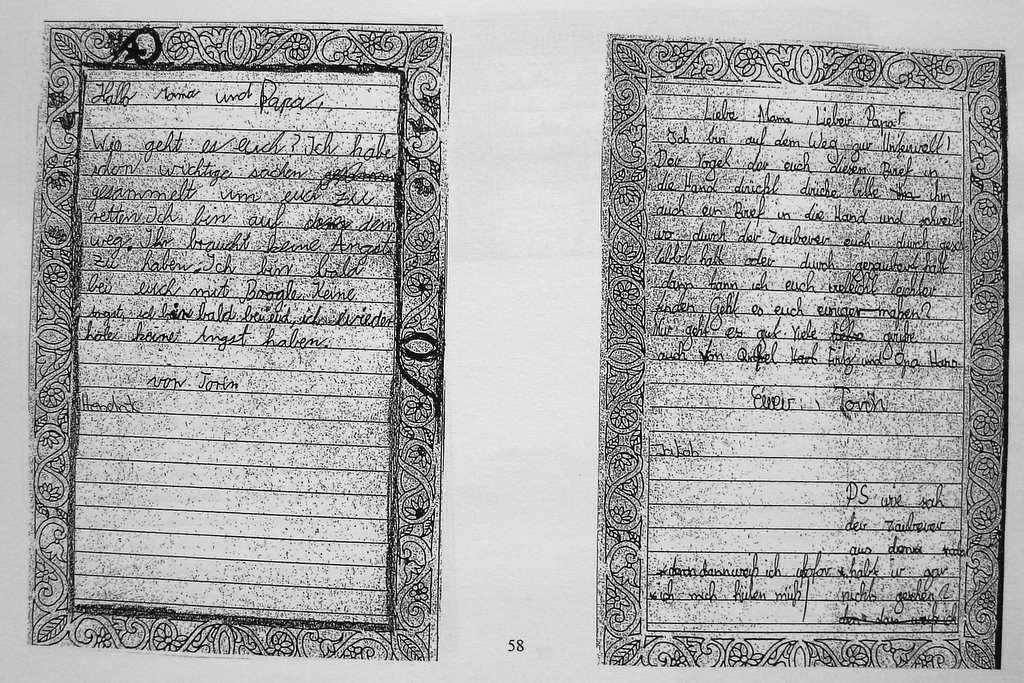 Hallo mama und Papa,
Wie geht es euch? Ich habe
schon wichtige sachen
gesammelt um euch zu
retten. Ich bin auf dem
weg. Ihr braucht keine Angst
zu haben. Ich bin bald
bei euch mit Boogle. Keine
angst, ich bin bald bei eu
keine Angst haben.
von Torin
Hendrik
Liebe Mama, Lieber Papa!
Ich bin auf dem Weg zur Unterwelt!
Der Vogel der euch diesen Brief in
die Hand drückt drücke bitte ihm
auch ein Brief in die Hand und schreibt
wo durch der Zauberer euch durch
hatt oder durch gezaubert hatt
dann kann ich euch leichter
finden. Geht es euch
Mir geht es gut Viele grüße
auch von Fritz und Opa Hans
Euer, Torin
Jakob
PS wie sah
der Zauberer
aus
dann weiß ich * habt ir gar
* ich mich hüten muß! nichts gesehen?
58